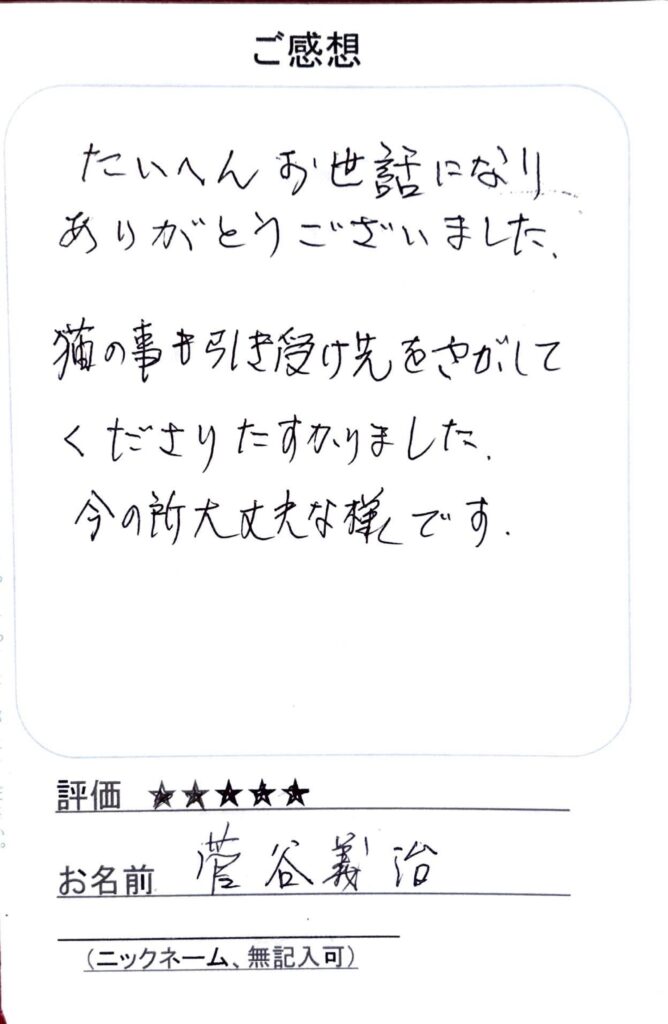 ご感想
たいへんお世話になり
ありがとうございました、
猫の事も引き受け先をさがして
くださりたすかりました、
今の所大丈夫な様です.
評価 ★★★★★
お名前 菅谷義治
(ニックネーム、無記入可)